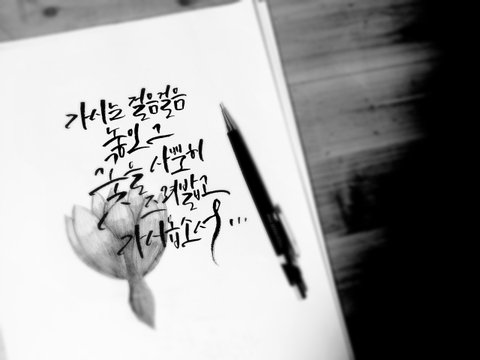 가시는 걸음걸음
놓인 그
꽃을 사뿐히
즈려밟고
가시옵소서...